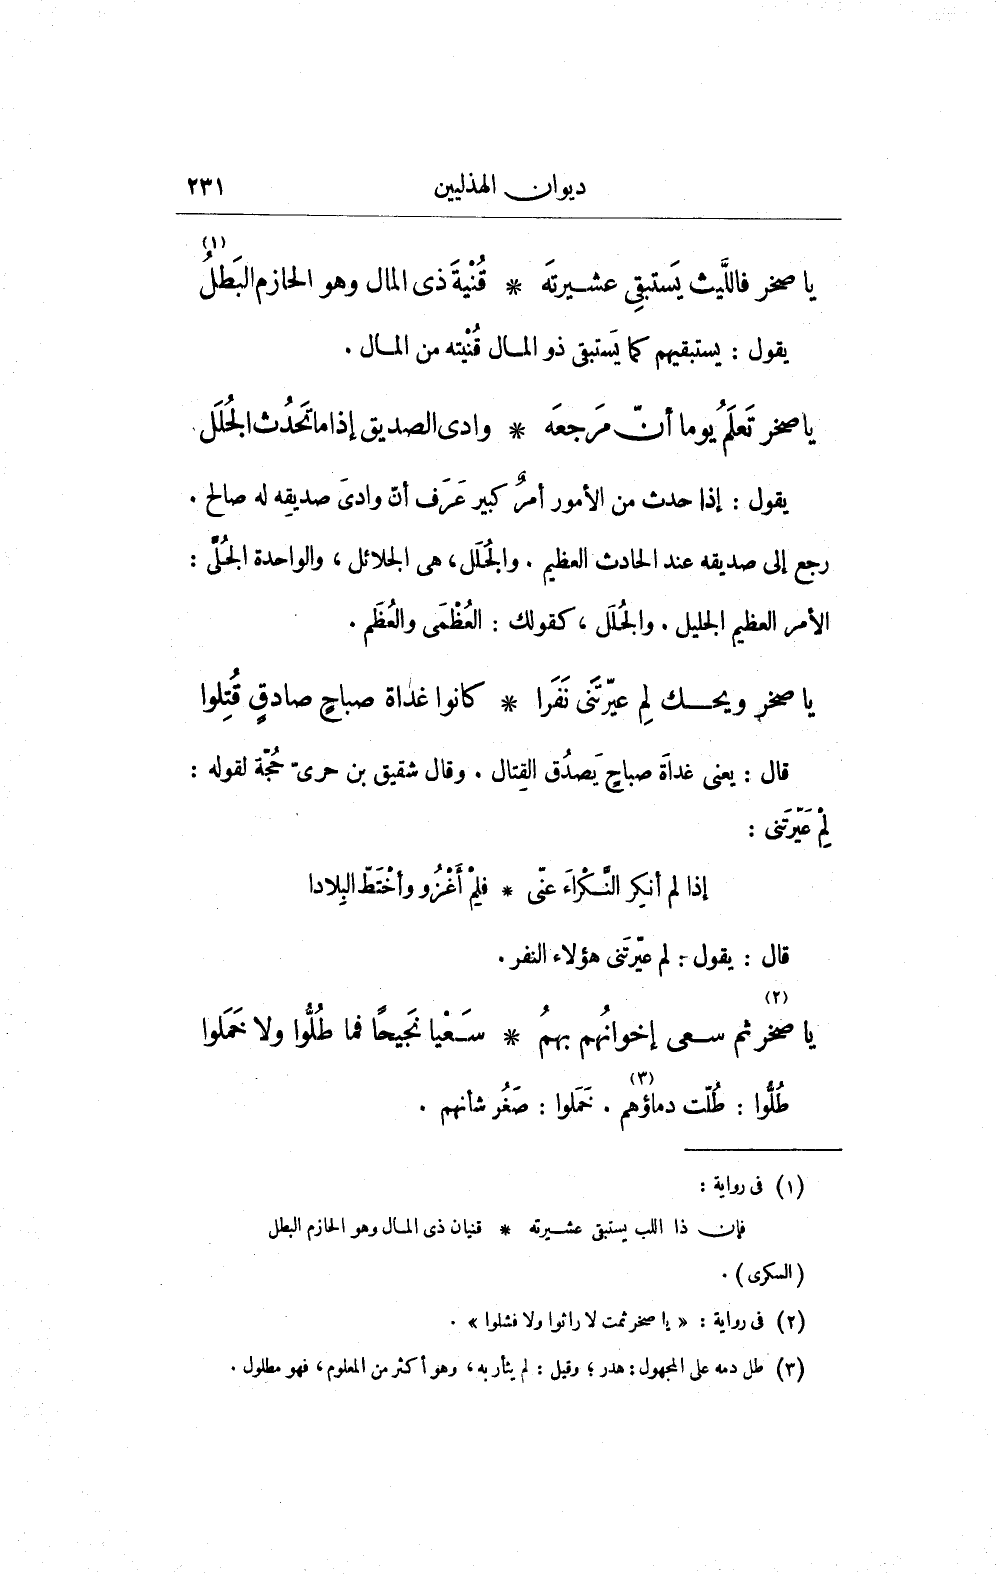 ديوان الهذليين ٢٣١
يا صخر فاللَّيث يَستبقِى عشيرتَه * قُنْيَةَ ذى المال وهو الحازم البَطلُ (١)
يقول : يستبقيهم كما يَستبقى ذو المال قُنْيته من المال .
يا صخر تَعلَمُ يوما أنّ مَرجعَه * وادى الصديق إذا ما تَحدُث الجُلَل
يقول : إذا حدث من الأمور أمرٌ كبير عَرَف أنّ وادىَ صديقِه له صالح .
رجع إلى صديقه عند الحادث العظيم . والجُلَل، هى الجلائل ، والواحدة الجُلَّى :
الأمر العظيم الجليل . والجُلَل ، كقولك : العُظْمَى والعُظَم .
يا صخر ويحـك لِم عيّرتَنى نَفَرا * كانوا غداة صباحٍ صادقٍ قُتِلوا
قال : يعنى غداةَ صباحٍ يَصدُق القِتال . وقال شقيق بن حرىّ حُجّة لقوله :
لِمْ عَيّرتَنى :
إذا لم أنكِر النَّكْراءَ عنّى * فلِمْ أَغْزُو وأخْتَطّ البِلادا
قال : يقول : لم عيّرتَنى هؤلاء النفر .
يا صخر ثم سعى إخوانُهم بهمُ * سَعْيا نَجيحًا فما طُلُّوا ولا خَمَلوا (٢)
طُلُّوا : طُلّت دماؤهم (٣) . خَمَلوا : صَغُر شأنهم .
(١) فى رواية :
فإن ذا اللب يستبقى عشيرته * قنيان ذى المال وهو الحازم البطل
(السكرى) .
(٢) فى رواية : « يا صخر ثمت لا راثوا ولا فشلوا » .
(٣) طل دمه على المجهول : هدر ؛ وقيل : لم يثأر به ، وهو أكثر من المعلوم ، فهو مطلول .